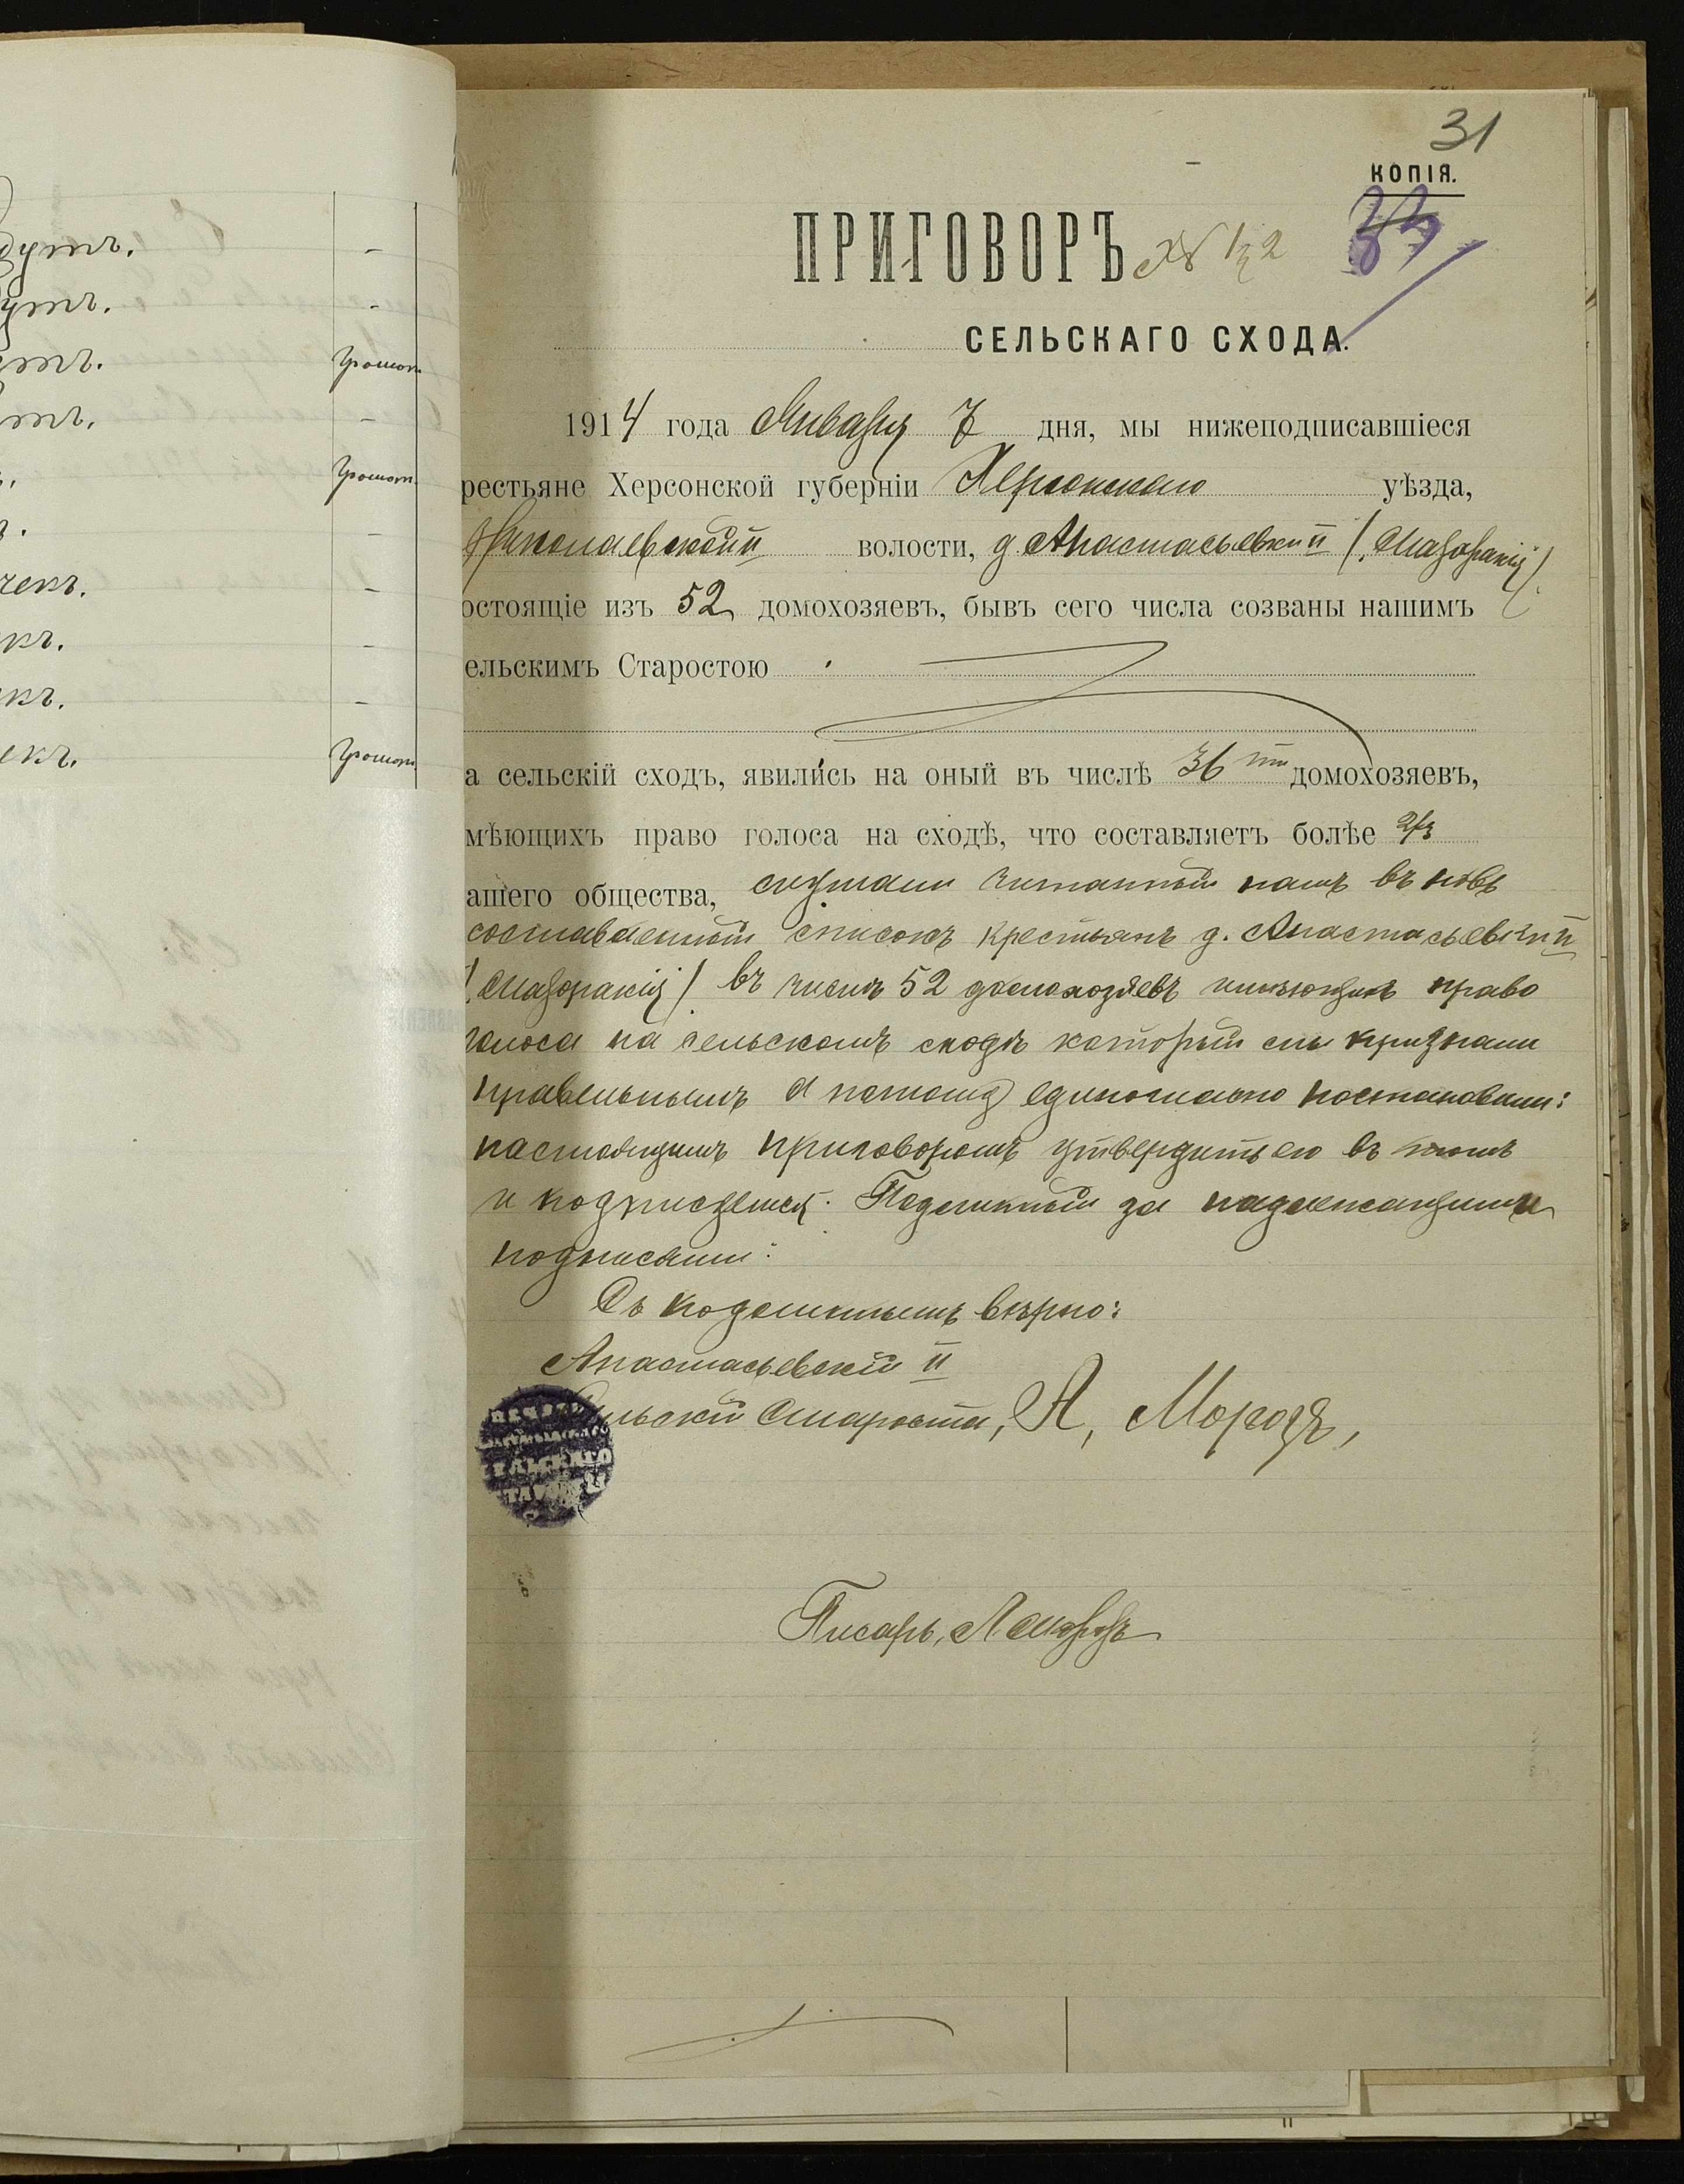 дутъ.
утъ.
етъ.
Грамот.
Грамот.
чекъ.
екъ.
Грамот.
31
КОПІЯ.
ПРИГОВОРЪ №
СЕЛЬСКАГО СХОДА.
1914 года Января 7 дня, мы нижеподписавшіеся
рестьяне Херсонской губерніи Херсонскаго уѣзда,
Николаевской II волости, д. Анастасьевки II (Мазоракія)
остоящіе изъ 52 домохозяевъ, бывъ сего числа созваны нашимъ
ельскимъ Старостою
а сельскій сходъ, явились на оный въ числѣ 36ти домохозяевъ,
мѣющихъ право голоса на сходѣ, что составляетъ болѣе 2/3
ашего общества, слушали читанный намъ въ новѣ
составленный списокъ крестьянъ д. Анастасьевки II
(Мазоракія) въ числѣ 52 домохозяевъ имѣющихъ право
голоса на сельскомъ сходѣ который мы признали
правельнымъ а потому единогласно постановили:
настоящимъ приговоромъ утвердить его въ томъ
и подписуемся. Подлинный за надлежащими
подписями:
Съ подлиннымъ вѣрно:
Анастасьевскій II
Сельскій Староста, А, Морозъ,
ПЕЧАТЬ
СЕЛЬСКАГО
СТАРОСТЫ
Писарь, А Морозъ